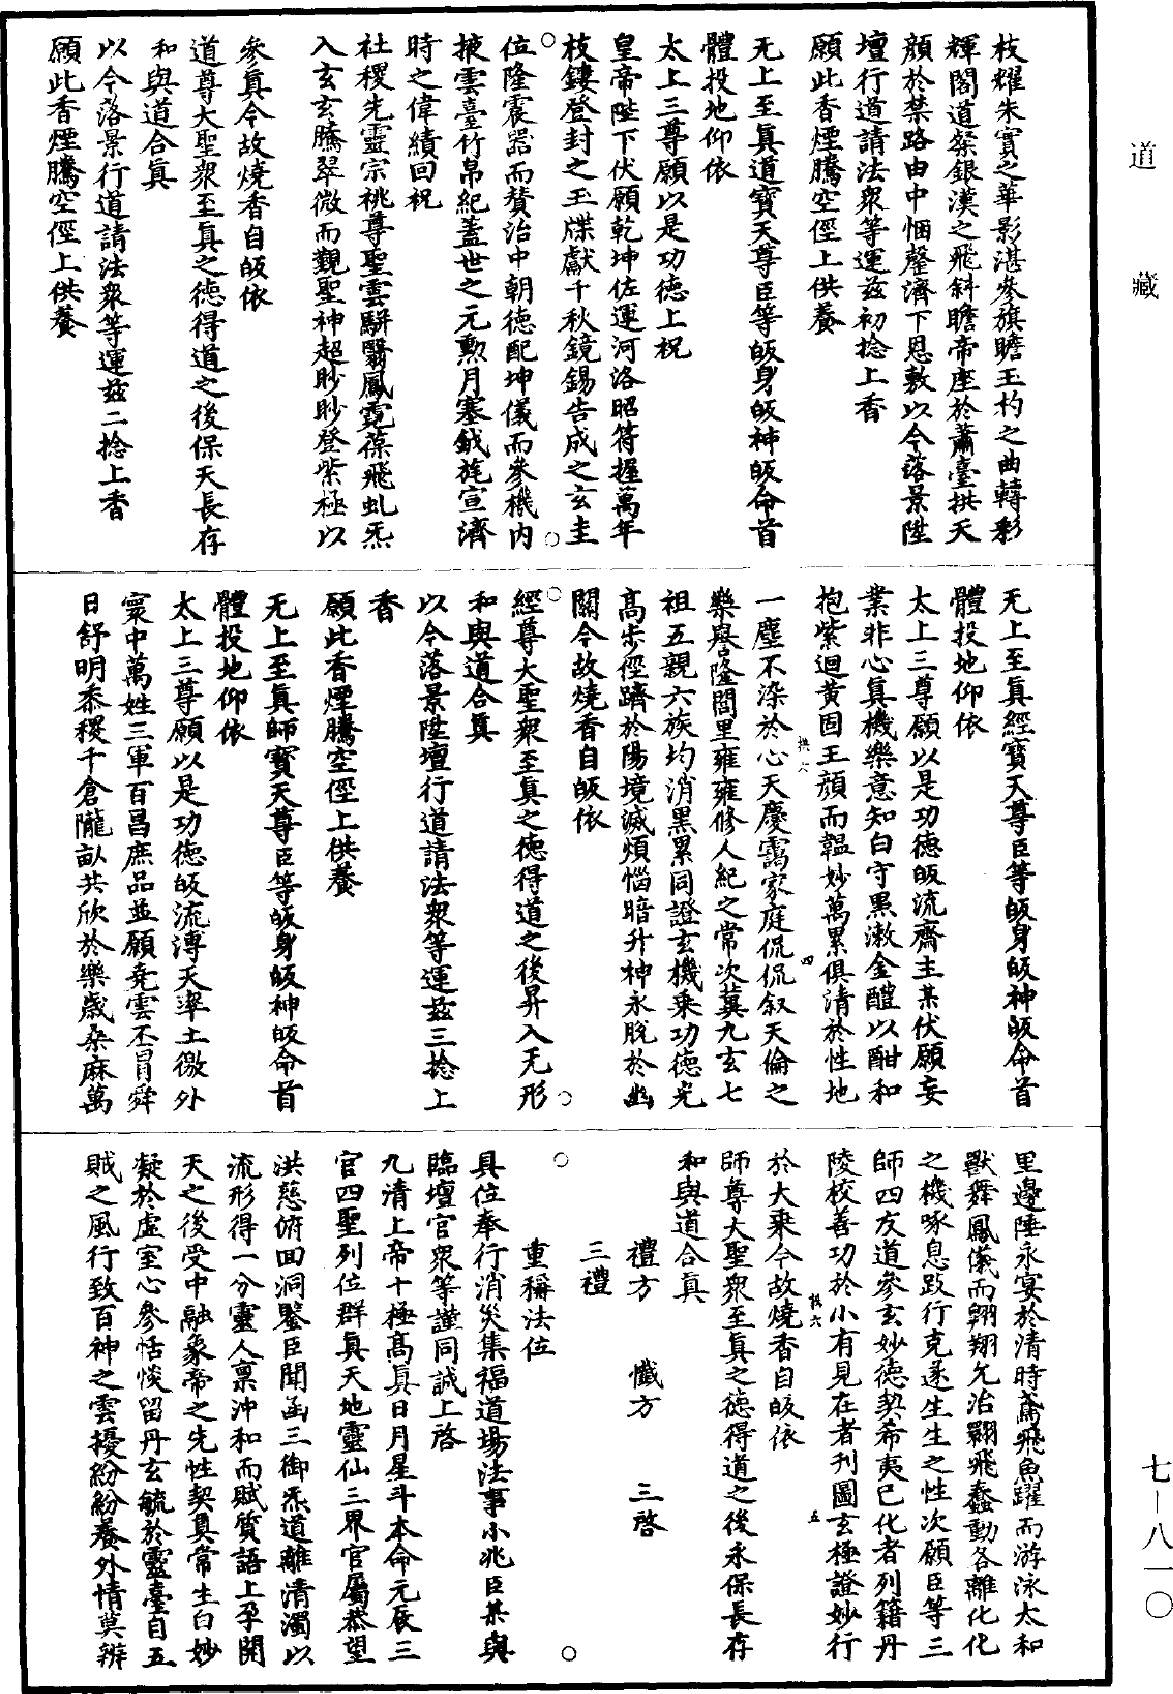 道藏
枝耀朱實之華影湛參旗瞻玉杓之曲轉彩
輝閣道粲銀漢之飛斜瞻帝座於蕭臺拱天
顏於禁路由中悃罄濟下恩敷以今落景陞
壇行道請法眾等運茲初捻上香
願此香煙騰空徑上供養
无上至真道寶天尊臣等皈身皈神皈命首
體投地仰依
太上三尊願以是功德上祝
皇帝陛下伏願乾坤佐運河洛昭符握萬年
枝鏤登封之玉牒獻千秋鏡錫告成之玄圭
位隆震器而贊治中朝德配坤儀而參機內
掖雲臺竹帛紀蓋世之元勳月塞鉞旄宣濟
時之偉績回祝
社稷先靈宗祧尊聖雲駢翳鳳霓葆飛虬炁
入玄玄騰翠微而觀聖神超眇眇登紫極以
參真今故燒香自皈依
道尊大聖眾至真之德得道之後保天長存
和與道合真
以今落景行道請法眾等運茲二捻上香
願此香煙騰空徑上供養
无上至真經寶天尊臣等皈身皈神皈命首
體投地仰依
太上三尊願以是功德皈流齋主某伏願妄
業非心真機樂意知白守黑漱金醴以酣和
抱紫迴黃固玉顏而韞妙萬累俱清於性地
一塵不染於心天慶靄家庭侃侃叙天倫之
樂譽隆閭里雍雍修人紀之常次冀九玄七
祖五親六族均消黑累同證玄機乘功德光
高步徑躋於陽境滅煩惱暗升神永脫於幽
關今故燒香自皈依
經尊大聖眾至真之德得道之後昇入无形
和與道合真
以今落景陞壇行道請法眾等運茲三捻上
香
願此香煙騰空徑上供養
无上至真師寶天尊臣等皈身皈神皈命首
體投地仰依
太上三尊願以是功德皈流溥天率土徼外
寰中萬姓三軍百昌庶品並願堯雲丕冒舜
日舒明黍稷千倉隴畝共欣於樂歲桑麻萬
里邊陲永宴於清時鳶飛魚躍而游泳太和
獸舞鳳儀而翱翔允治翾飛蠢動各離化化
之機啄息跂行克遂生生之性次願臣等三
師四友道參玄妙德契希夷已化者列籍丹
陵校善功於小有見在者刊圖玄極證妙行
於大乘今故燒香自皈依
師尊大聖眾至真之德得道之後永保長存
和與道合真
禮方 懺方 三啓
三禮
重稱法位
具位奉行消災集福道場法事小兆臣某與
臨壇官眾等謹同誠上啓
九清上帝十極高真日月星斗本命元辰三
官四聖列位群真天地靈仙三界官屬恭望
洪慈俯回洞鑒臣聞函三御炁道離清濁以
流形得一分靈人稟沖和而賦質語上孕開
天之後受中融象帝之先性契真常生白妙
凝於虛室心參恬惔留丹玄毓於靈臺自五
賊之風行致百神之雲擾紛紛養外情莫辨
七-八一〇